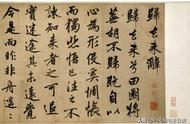 歸去來辭
歸去來兮田園將
蕪胡不歸既自以
心為形役奚惆悵
而獨悲悟已往之不
諫知來者之可追
實迷途其未遠覺
今是而昨非舟遥